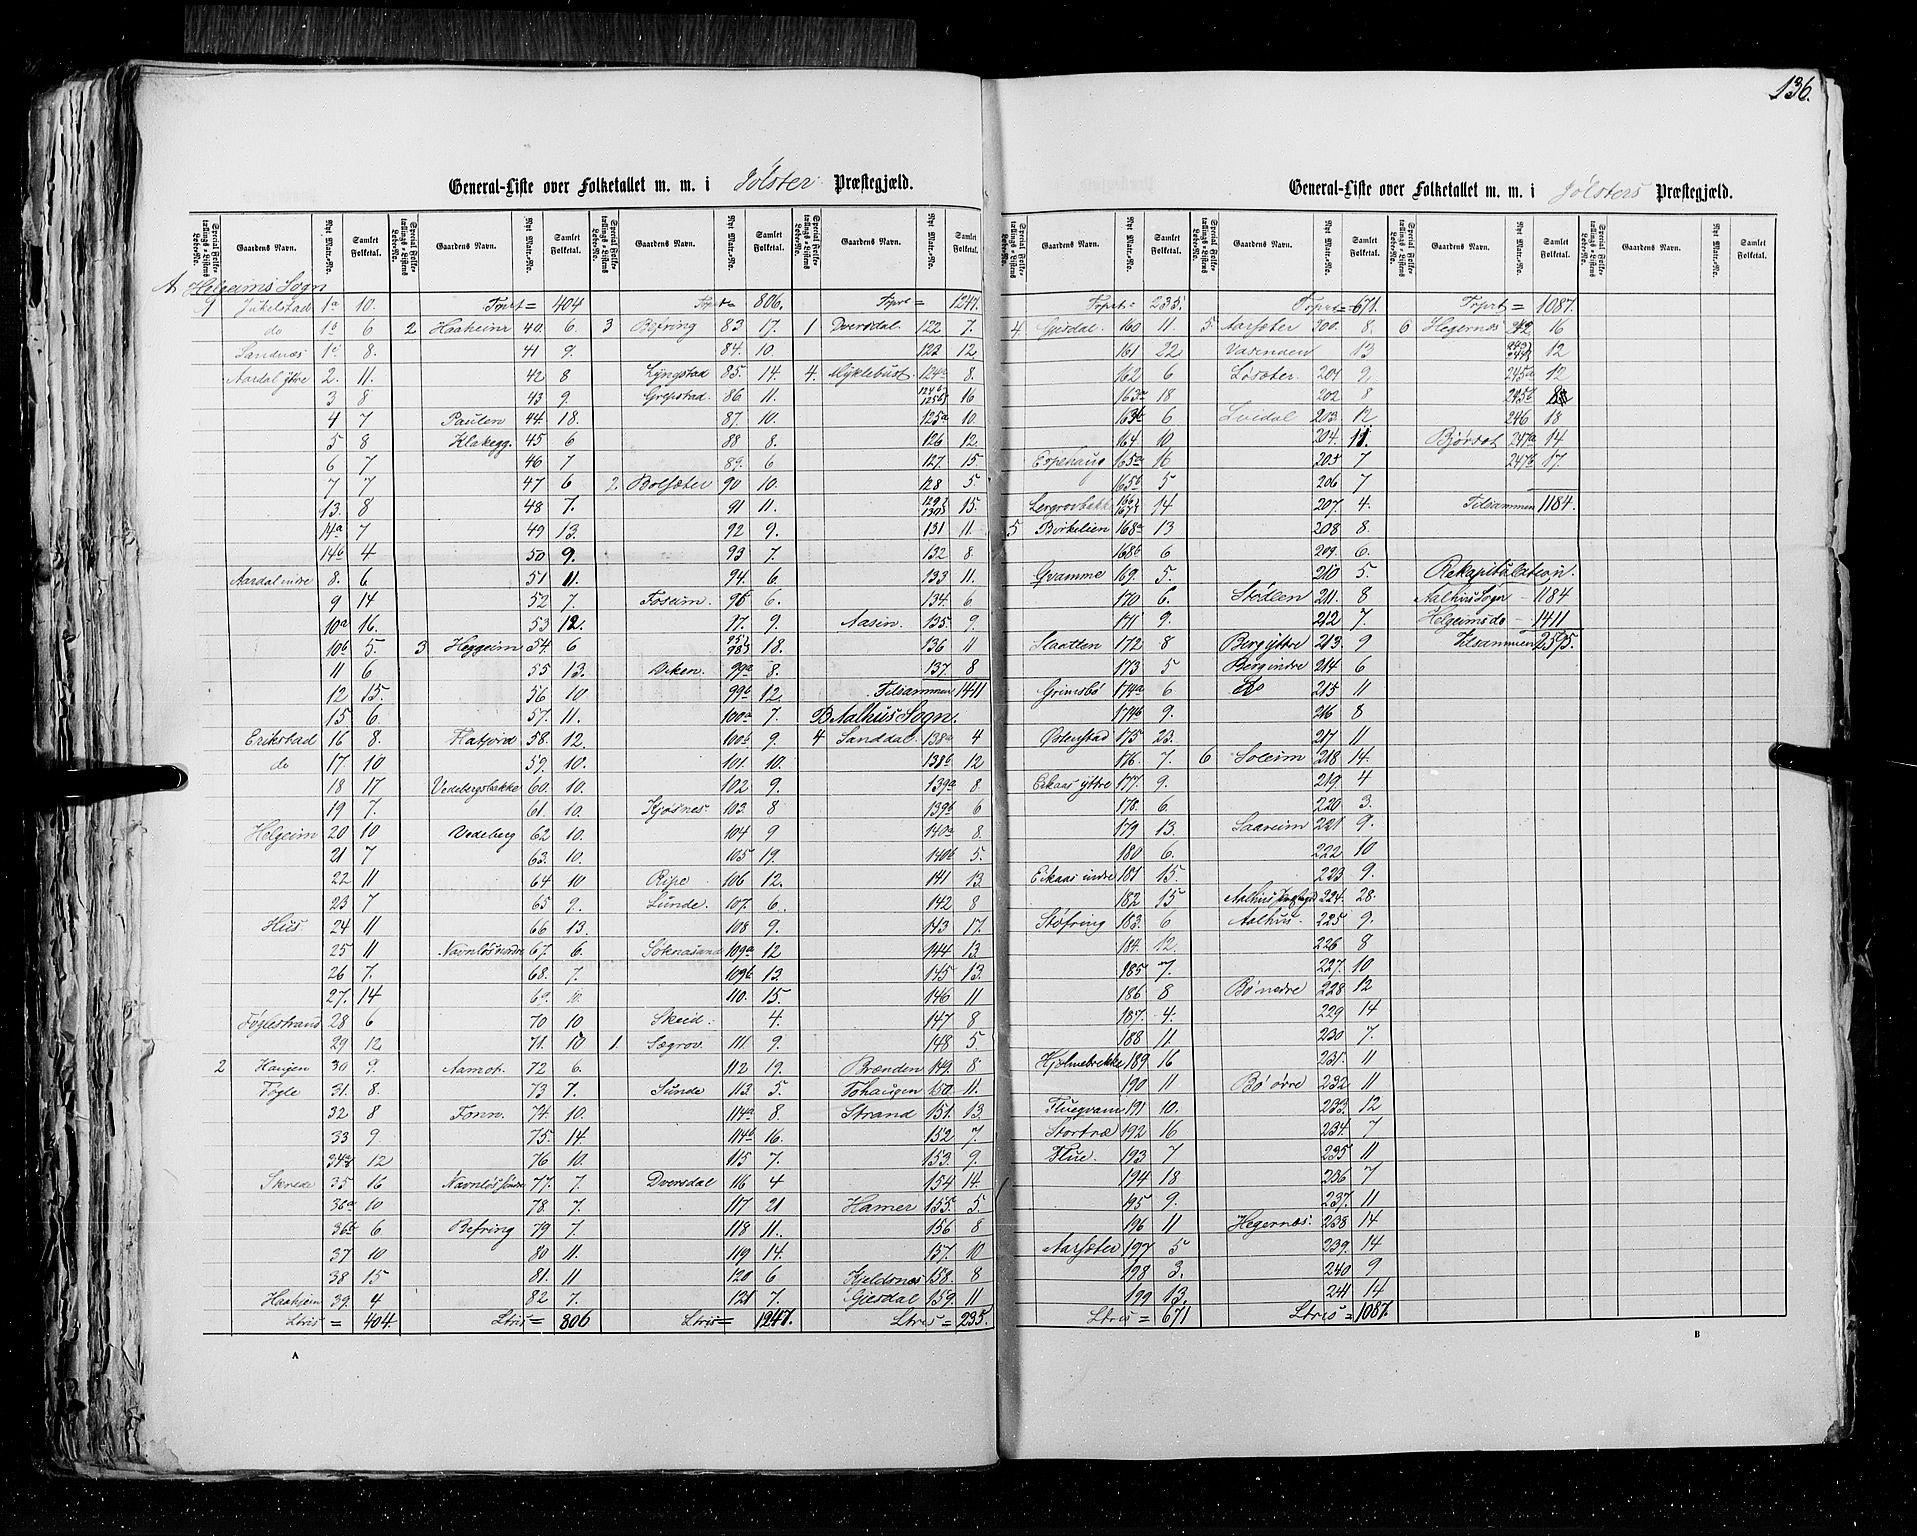 136.
General-Liste over Folketallet m. m. i Jölster Præstegjæld.
Special Folketællings-Listens Løbe-No. Gaardens Navn. Nyt Matr.-No. Samlet Folketal.
A Helgeims Sogn
1 Jukelstad 1a 10.
do 1b 6
Sandnæs 1c 8.
Aardal ytre 2. 11.
3 8
4 7
5 8
6 7
7 7
13. 8
14a 7
14b 4
Aardal indre 8. 6
9 14
10a 16.
10b 5.
11 6
12 15.
15 6.
Erikstad 16 8.
do 17 10
18 17
19 7.
Helgeim 20 10
21 7
22 11
23 7
Hus 24 11
25 11
26 7.
27. 14
Föglestrand 28 6
29 12
2 Haugen 30 9.
Fögle 31. 8.
32 8
33 9.
34 12
Skrede 35 16
36a 10
36b 6
37 10
38 15
Haaheim 39. 4
Ltris = 404.
Trprt = 404
2 Haaheim 40. 6.
41 9.
42 8
43 9
Paulen 44. 18.
Klakegg. 45 6
46 7
47 6
48 7.
49 13.
50 9.
51 11.
52 7.
53 12.
3 Heggeim 54 6
55 13.
56 10
57. 11.
Flatjord 58. 12.
59. 10.
Vedebergsbakke 60. 10.
61. 10.
Vedeberg 62 10.
63. 10.
64 10
65 9.
66 13.
Navnløs nedre 67. 6.
68. 7.
69. 10.
70 10
71. 10
Aamot. 72 6.
73 7.
Fonn. 74. 10.
75. 14.
76 10.
Navnløs søndre 77. 7.
78. 7.
Befring 79 7.
80 11.
81. 11
82 7.
Ltris = 806
Trprt = 806.
3 Befring 83 17.
84. 10.
Lyngstad 85. 14.
Grepstad. 86 11.
87. 10.
88 8.
89. 6
2. Bolsæter 90 10.
91 11.
92 9.
93 7.
94. 6.
Foseim. 96 6.
97. 9.
95 98 18.
Viken. 99a 8.
99b 12.
100a 7.
100b 9.
101. 10.
102 9.
Kjøsnes 103. 8
104 9
105 19.
Ripe 106 12.
Lunde. 107. 6.
108 9.
Søknasand 109a 12
109b 13.
110. 15.
Skeid. 4.
1. Sægrov. 111 9.
112 19.
Sunde 113. 5.
114a 8.
114b 16.
115 7.
Dversdal 116 4
117 21
118 11.
119 14.
120 6
121 7.
Ltris = 1247.
Trprt = 1247.
1 Dversdal. 122 7.
123 12.
4. Myklebust. 124a 8.
124b 125b 16
125a 10.
126 12.
127. 15.
128 5
129 130 15.
131 11.
132 8.
133 11.
134. 6.
Aasen. 135. 9.
136 11
137. 8
Tilsammen 1411
B Aalhus Sogn.
4 Sanddal 138a 4
138b 12
139a 8.
139b 6
140a 8.
140b 5.
141 13
142 8
143 17.
144 13.
145 13.
146 11
147 8
148 5.
Brænden 149. 8
Tohaugen 150. 11.
Strand 151. 13.
152 7.
153. 9.
154 14.
Hamer 155. 5.
156 8
157. 10
Kjeldsnes 158. 8
Gjesdal 159. 11
Ltris = 235.
General-Liste over Folketallet m. m. i Jölsters Præstegjæld.
Special Folketællings-Listens Løbe-No. Gaardens Navn. Nyt Matr.-No. Samlet Folketal.
Trprt = 235.
4. Gjesdal. 160 11.
161 22
162 6
163a 18
163b 6
164. 10
Espehaug 165a 16
165b 5
Lergrovbakk 166 167 14
5 Birkelien 168a 13
168b 6
Qvamme 169. 5.
170 6.
171 9.
Slaatten 172 8
173 5
Grimsbö 174a 6
174b 9.
Østenstad 175 23.
176. 7.
Eikaas ytre 177. 9.
178. 6.
179 13.
180 6.
Eikaas indre 181 15.
182 15
Støfring 183. 6
184. 12.
185 7.
186 8
187. 4.
188 11.
Hjelmebrekke 189 16
190 11
Fluegvam 191 10.
Stortræ 192 16
Flue. 193 7
194 18
195 9.
196 11
Aarsæter 197 5
198 3.
199 13.
Ltris = 671
Trprt = 671.
5. Aarsæter 200. 8.
Vasenden 13
Løsæter. 201 9.
202 8
Svidal 203. 12
204. 11.
205 7
206 7
207. 4.
208 8.
209. 6.
210 5.
Stölen 211. 8
212 7.
Berg ytre 213. 9
Berg indre 214 6
do 215 11
216 8
217 11
6 Soleim 218 14.
219. 4
220 3.
Saareim 221 9.
222 10
223 9.
Aalhus Præstegd 224. 28.
Aalhus. 225. 9.
226 8
227. 10
Bö nedre 228. 12
229 14
230 7.
231. 11
Bö övre 232 11
233. 12
234. 7
235 11
236 7
237. 11
Hegernæs. 238 14
239. 14
240 9
241 14
Ltris = 1087.
Trprt = 1087.
6 Hegernæs 242 16
243 244 12
245a 12
245b
246 18
Björdal 247a 14
247b 17.
Tilsammen 1184.
Rekapitulation.
Aalhus Sogn - 1184
Helgeims do - 1411
Tilsammen 2595.
A
B